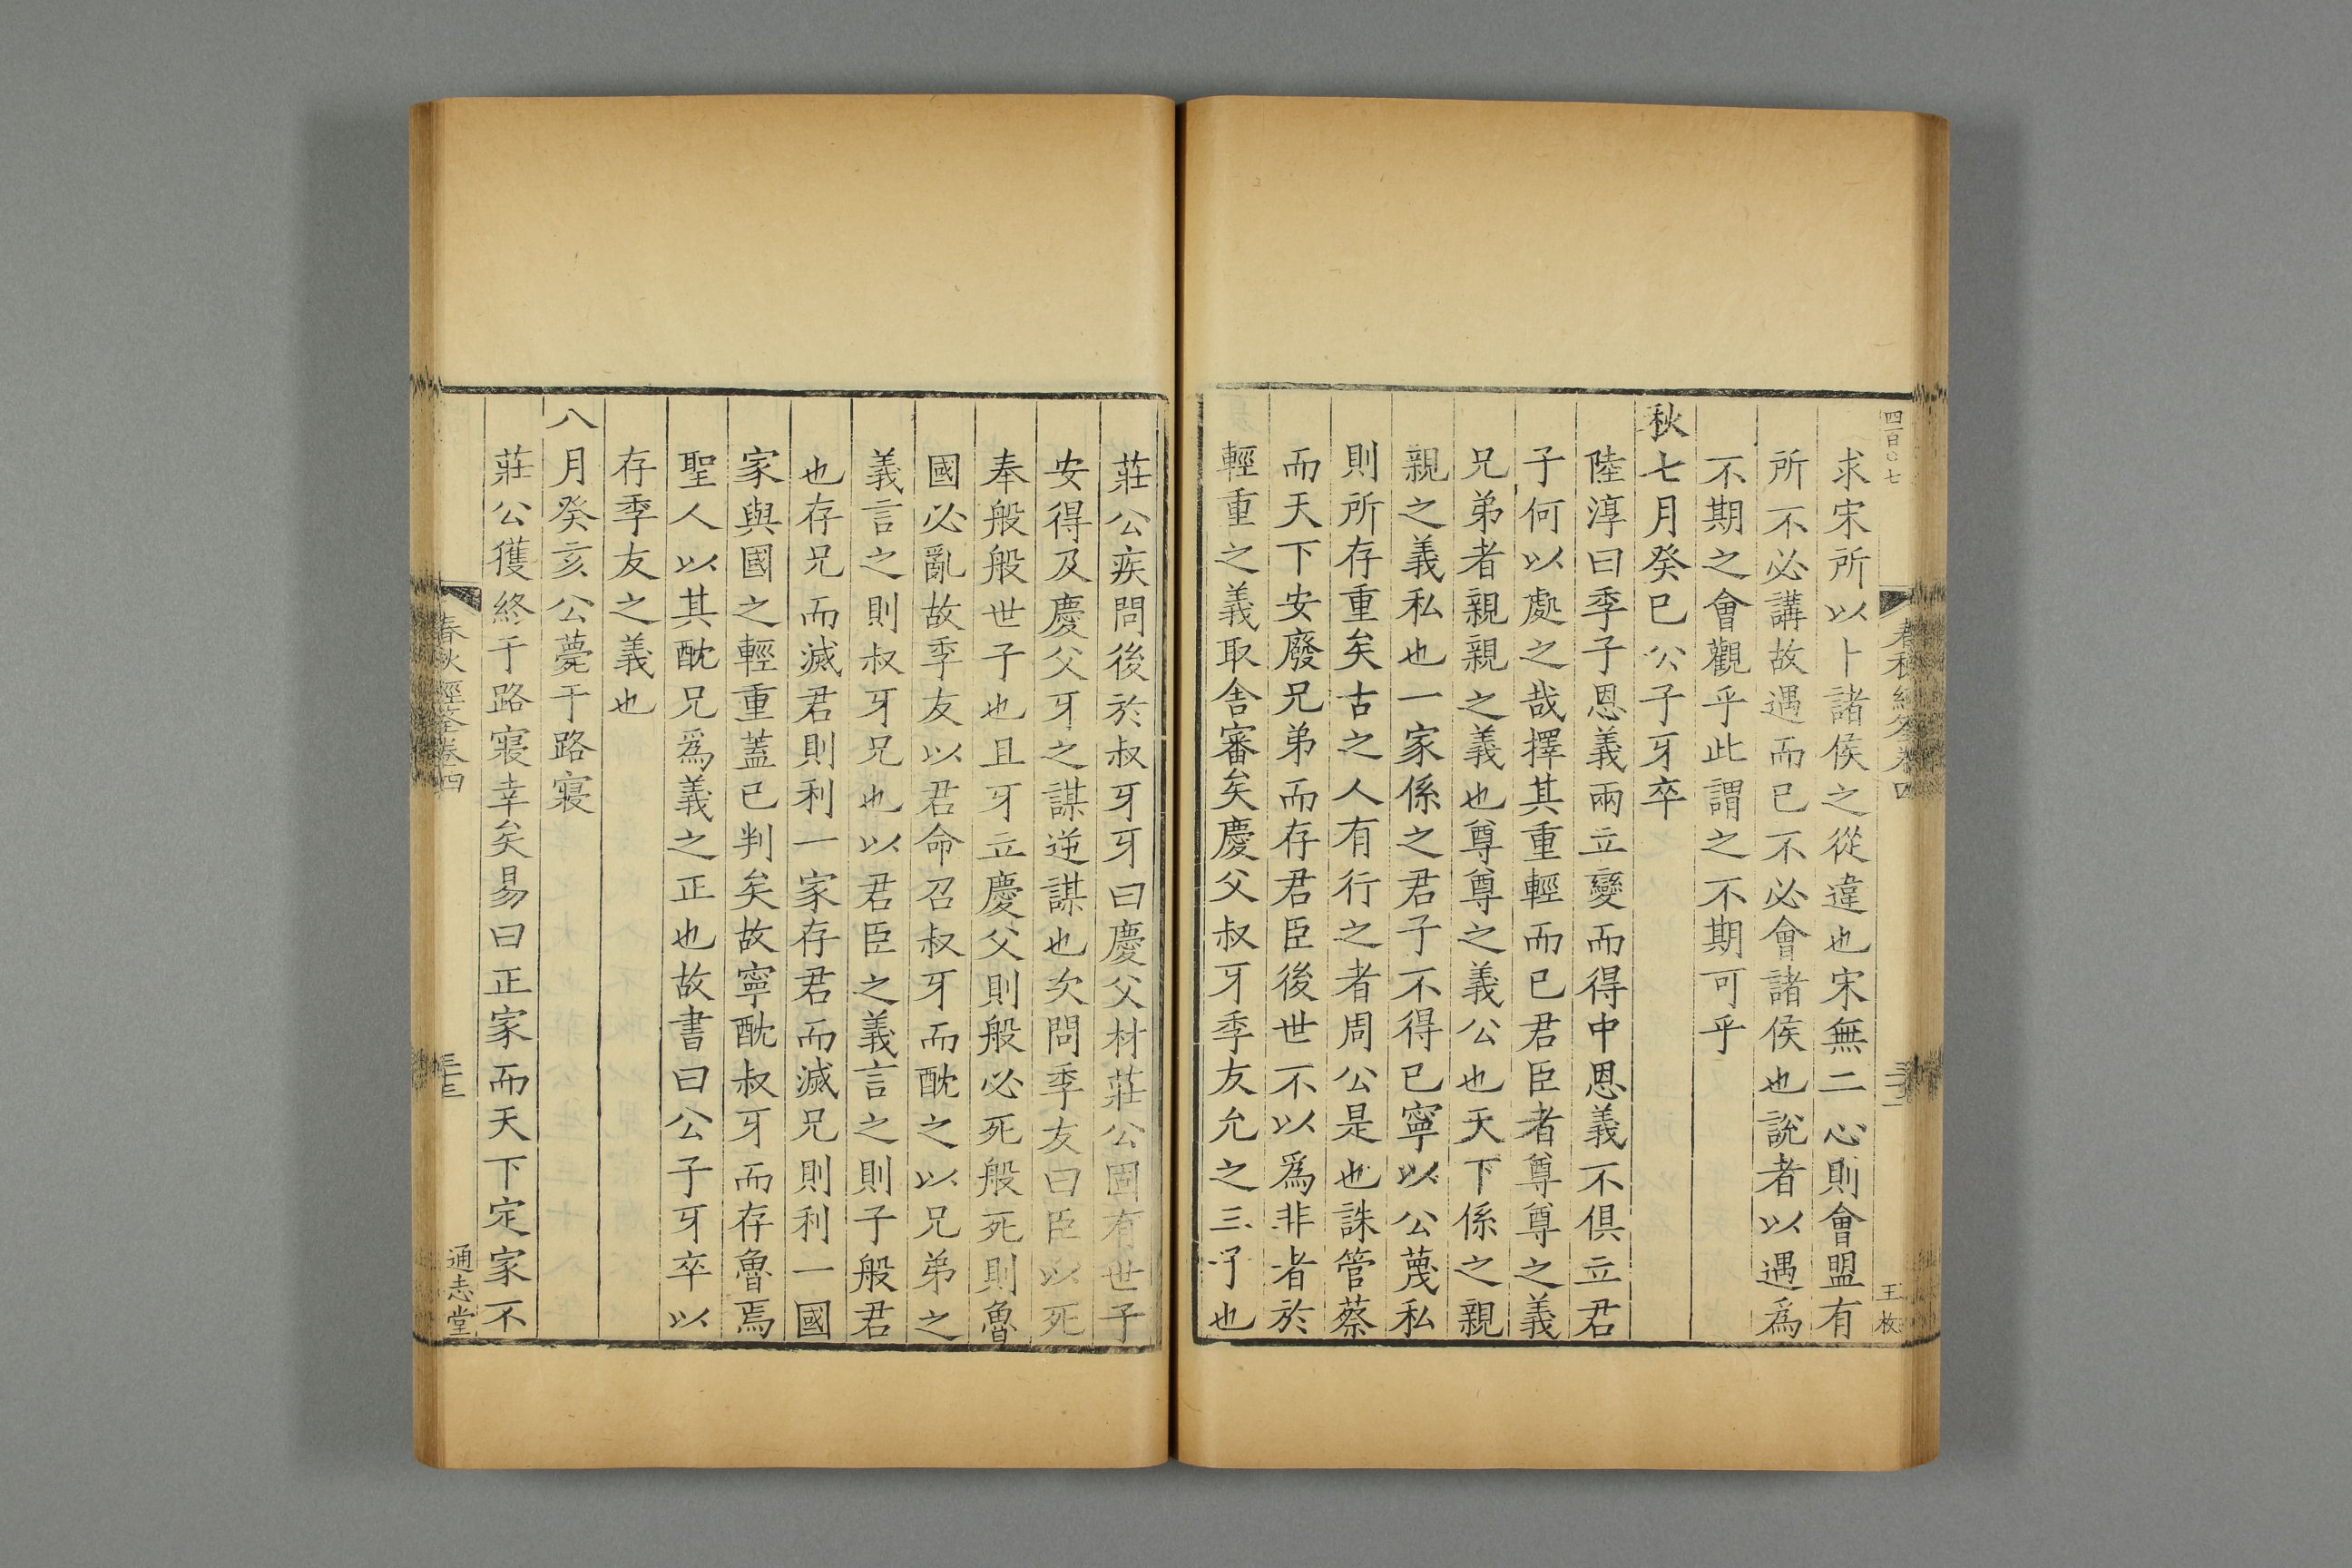 四百〇七
春秋經筌卷四
王枚
求宋所以卜諸侯之從違也宋無二心則會盟有
所不必講故遇而已不必會諸侯也說者以遇爲
不期之會觀乎此謂之不期可乎
秋七月癸巳公子牙卒
陸淳曰季子恩義兩立變而得中恩義不俱立君
子何以處之哉擇其重輕而已君臣者尊尊之義
兄弟者親親之義也尊尊之義公也天下係之親
親之義私也一家係之君子不得已寧以公蔑私
則所存重矣古之人有行之者周公是也誅管蔡
而天下安廢兄弟而存君臣後世不以爲非者於
輕重之義取舍審矣慶父叔牙季友允之三子也
莊公疾問後於叔牙牙曰慶父材莊公固有世子
安得及慶父牙之謀逆謀也次問季友曰臣以死
奉般般世子也且牙立慶父則般必死般死則魯
國必亂故季友以君命召叔牙而酖之以兄弟之
義言之則叔牙兄也以君臣之義言之則子般君
也存兄而滅君則利一家存君而滅兄則利一國
家與國之輕重蓋已判矣故寧酖叔牙而存魯焉
聖人以其酖兄爲義之正也故書曰公子牙卒以
存季友之義也
八月癸亥公薨于路寢
莊公獲終于路寢幸矣易曰正家而天下定家不
春秋經筌卷四
通志堂